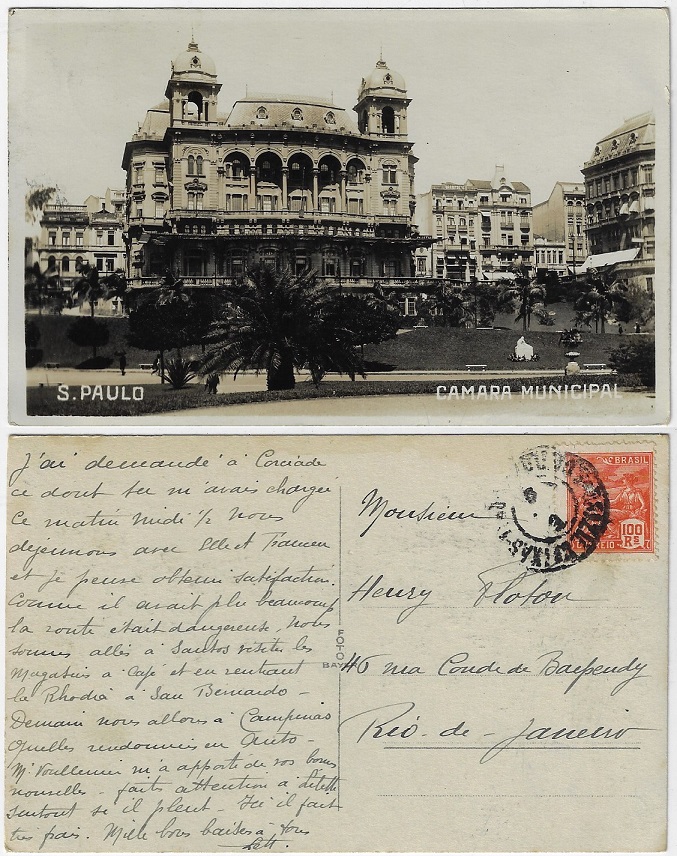 S. PAULO
CAMARA MUNICIPAL
J'ai demandé à Corciade
ce dont tu m'avais charger
Ce matin midi ½ nous
dejeunons avec Mr et
et je pense obtenir satisfaction.
Comme il avait plu beaucoup
la route etait dangereuse, nous
sommes allés à Santos visiter les
Magasins à Café et en rentrant
la Rhodia à San Bernardo -
Demain nous allons à Campinas
Quelles randonnées en Auto -
Mr Voullemin m'a apporté de vos bonnes
nouvelles - faits attention à
surtout se il pleut - Ici il fait
très frais. Mille bons baisers à tous
FOTO
Monsieur
Henry Floton
46 rua Conde de Baependy
Rio-de-Janeiro
BRASIL
100
RS
CORREIO